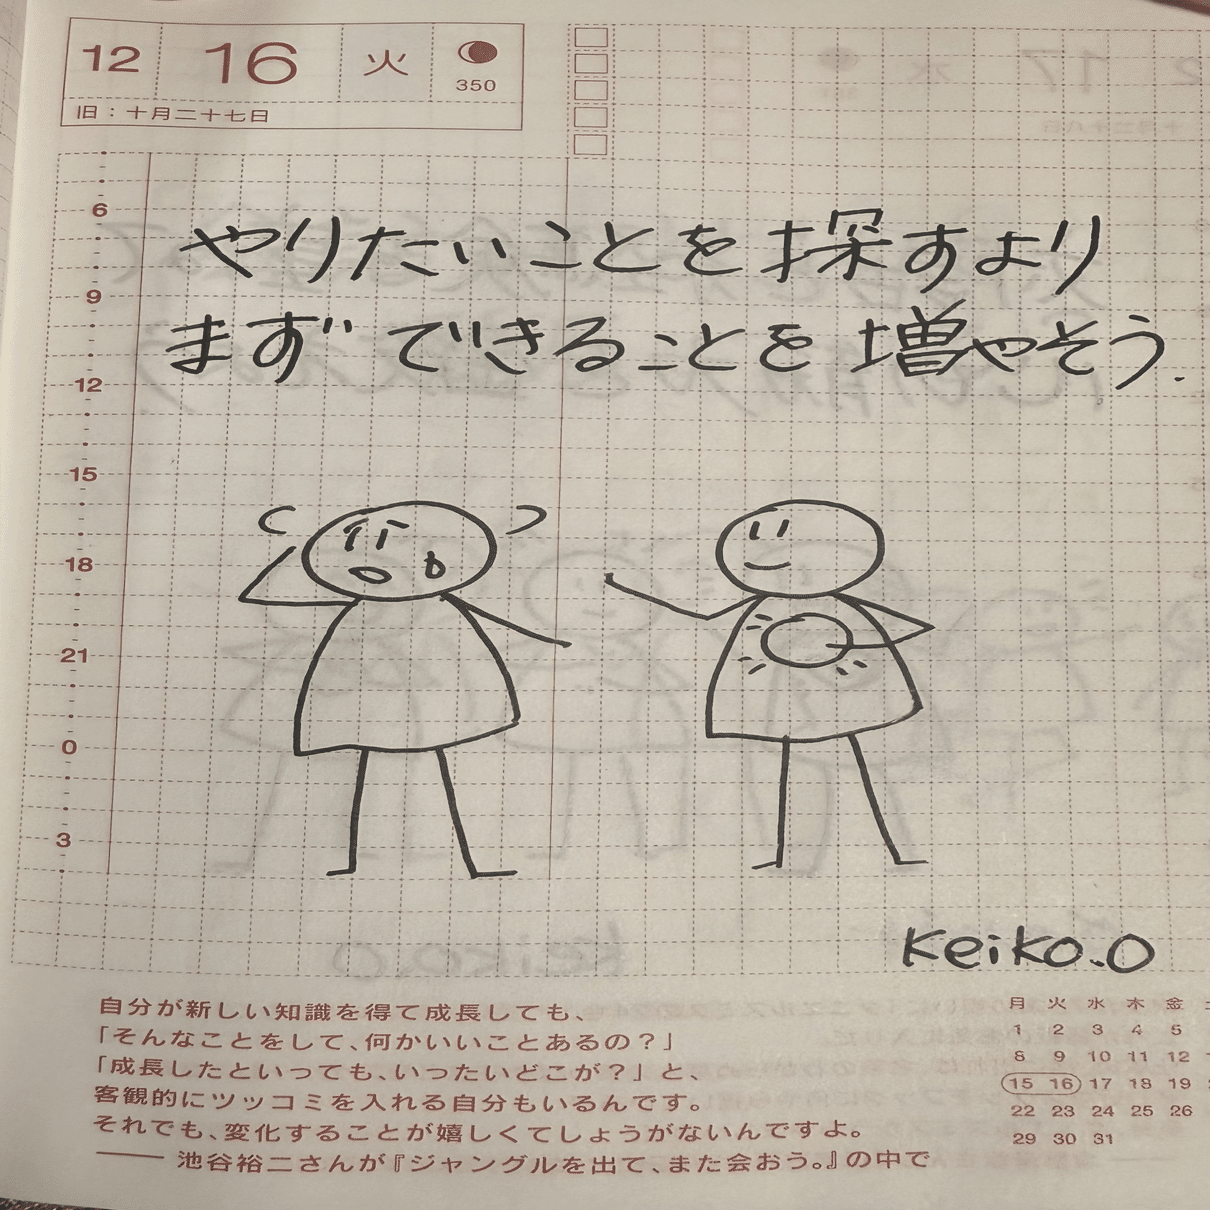 12 16 火
350
旧：十月二十七日
6
9
12
15
18
21
0
3
やりたいことを探すより
まずできることを増やそう.
Keiko.O
自分が新しい知識を得て成長しても、
「そんなことをして、何かいいことあるの？」
「成長したといっても、いったいどこが？」と、
客観的にツッコミを入れる自分もいるんです。
それでも、変化することが嬉しくてしょうがないんですよ。
—— 池谷裕二さんが『ジャングルを出て、また会おう。』の中で
月 火 水 木 金
1 2 3 4 5
8 9 10 11 12
15 16 17 18 19
22 23 24 25 26
29 30 31